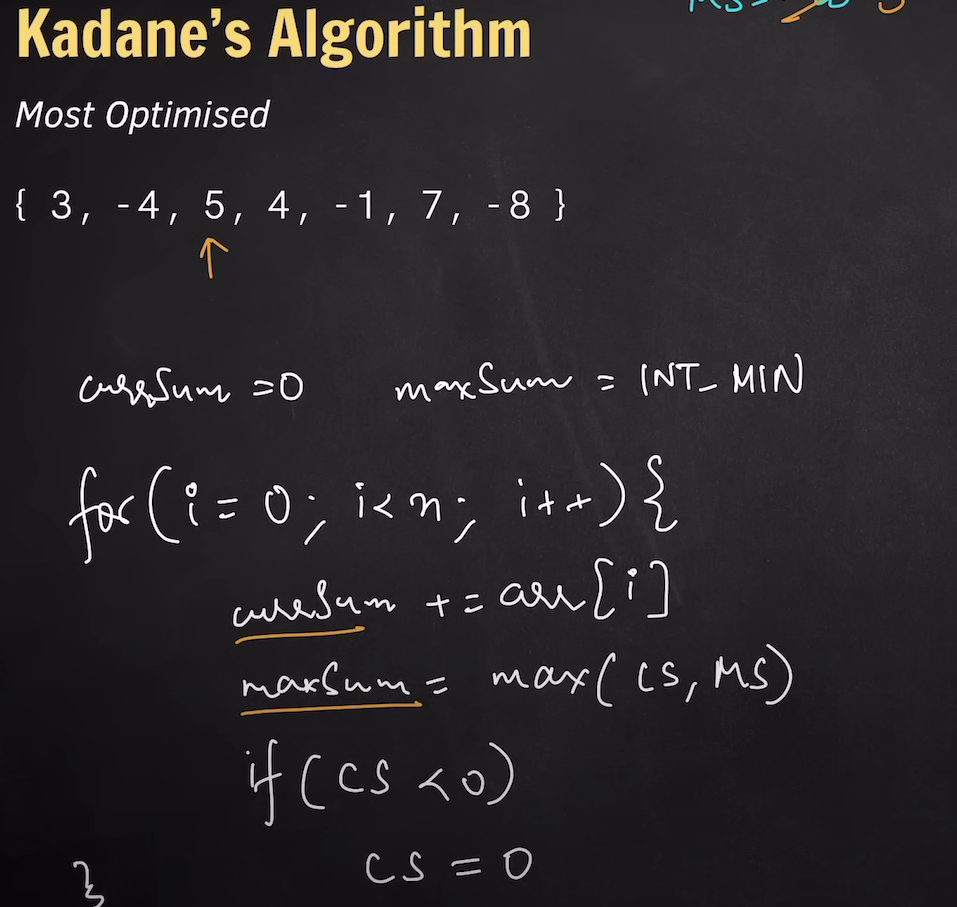 Kadane's Algorithm
Most Optimised
{ 3, -4, 5, 4, -1, 7, -8 }
currSum = 0 maxSum = INT_MIN
for(i = 0; i < n; i++){
currSum += arr[i]
maxSum = max(CS, MS)
if(CS < 0)
CS = 0
}